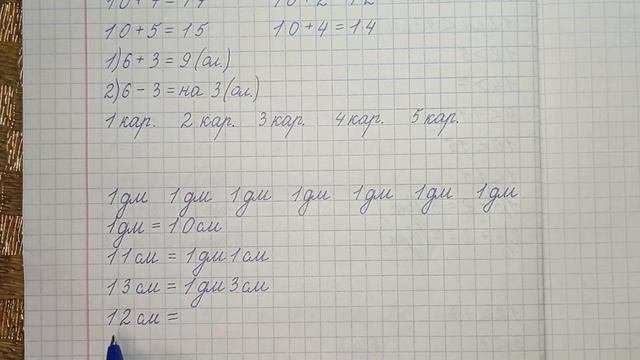 10+5=15 10+4=14
1)6+3=9(ол.)
2)6-3=на 3(ол.)
1 кар. 2 кар. 3 кар. 4 кар. 5 кар.
1дм 1дм 1дм 1дм 1дм 1дм 1дм
1дм = 10см
11см = 1дм 1см
13см = 1дм 3см
12см =